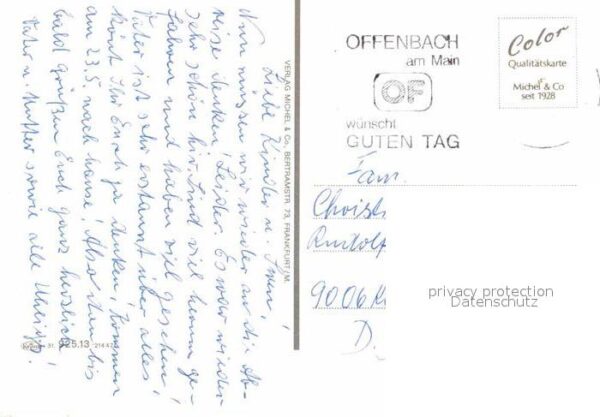 Liebe Kinder u. Sven!
Nun müssen wir wieder an die Ab-
reise denken! Leider. Es war wieder
sehr schön hier. Sind viel herum ge-
fahren und haben viel gesehen!
Vater ist sehr erstaunt über alles!
Könnt Ihr Euch ja denken! Kommen
am 23.5. nach hause! Also dann bis
bald grüßen Euch ganz herzlich
Vater u. Mutter sowie alle
VERLAG MICHEL & Co., BERTRAMSTR. 73, FRANKFURT/M.
925.13
OFFENBACH
am Main
OF
wünscht
GUTEN TAG
Color
Qualitätskarte
Michel & Co
seit 1928
Fam.
Rudolf
D.
privacy protection
Datenschutz